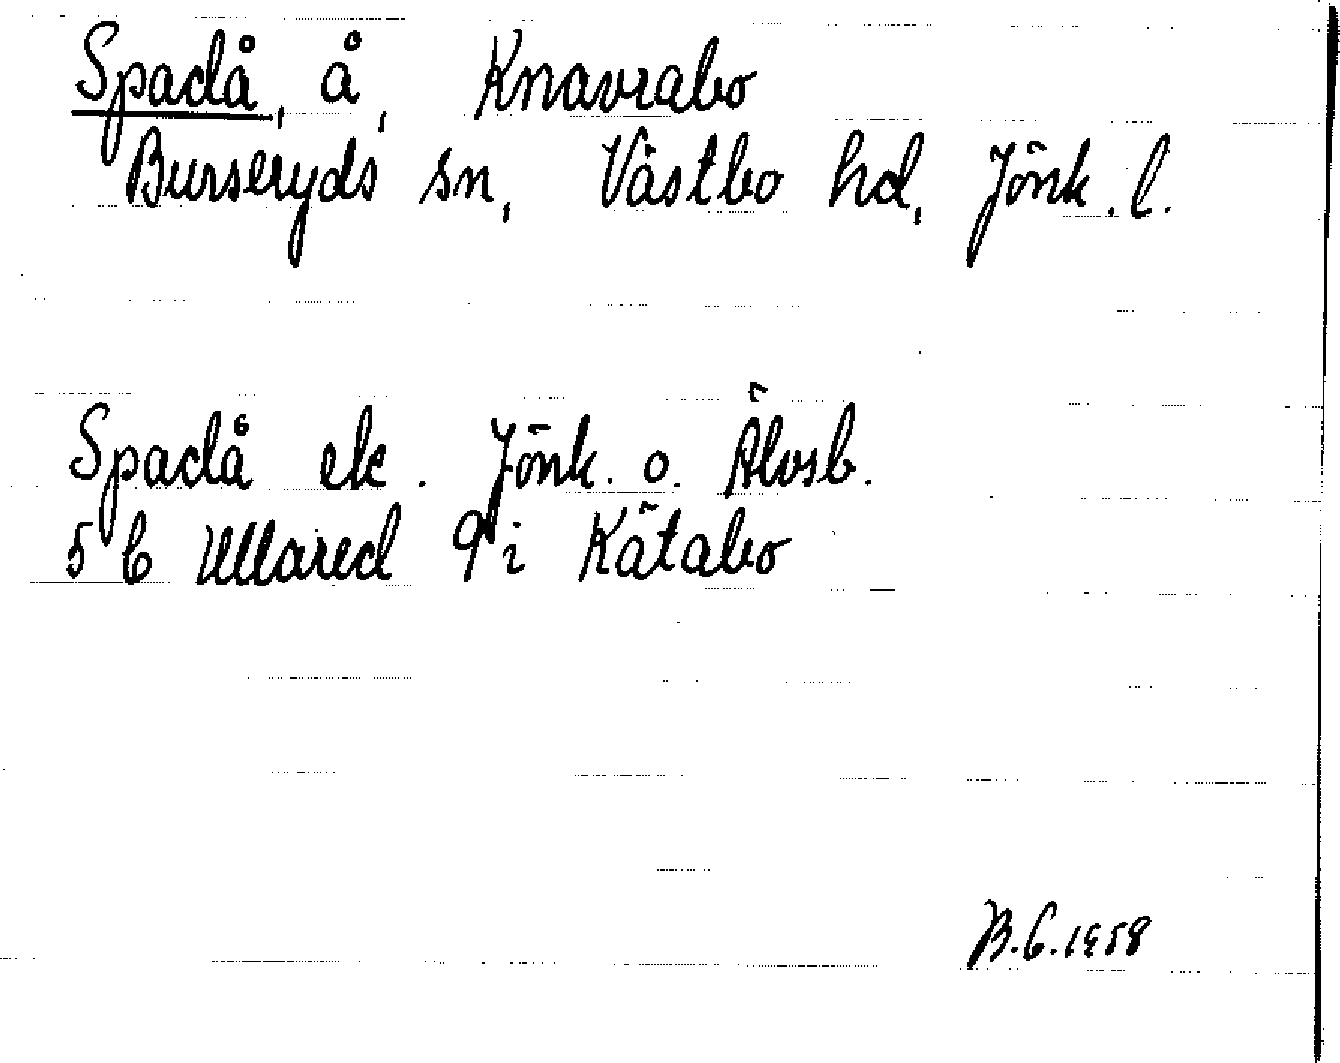 Spadå, å, Knavrabo
Burseryds sn, Västbo hd, Jönk. l.
Spadå ek. Jönk. o. Älvsb.
5 b Ullared 9 i Kätabo
B.G.1958